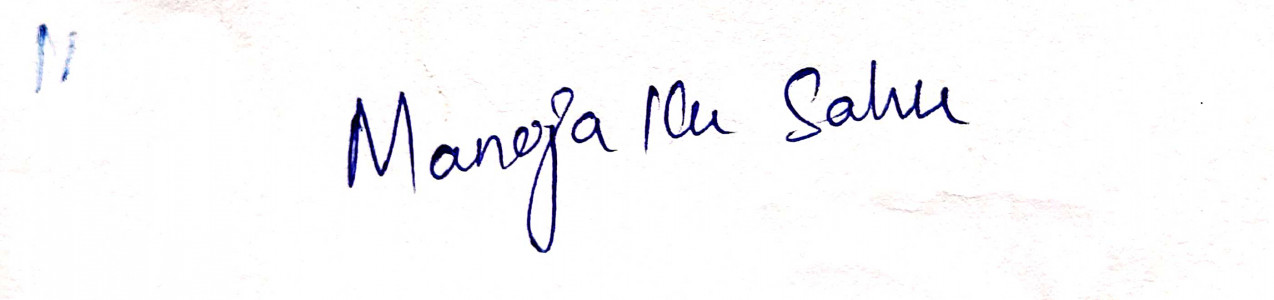 Manoja Ku Sahu